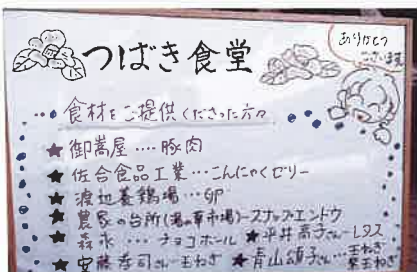 つばき食堂
ありがとう
ございます
食材をご提供くださった方々
★御嵩屋‥‥豚肉
★佐合食品工業…こんにゃくゼリー
★渡辺養鶏場…GP
★農家の台所(湯の華市場)-スナップエンドウ
★森永…チョコボール ★平井高子さん-レタス
★安藤香司さん-玉ねぎ ★青山頌子さん…玉ねぎ 紫玉ねぎ